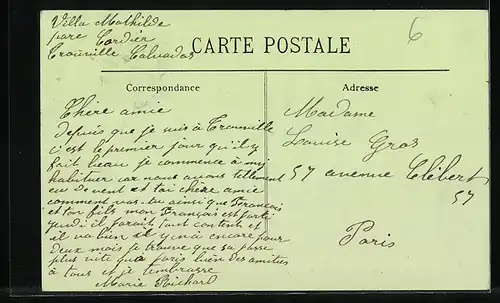 Villa Mathilde
parc Cordier
Trouville Calvados
6
CARTE POSTALE
Correspondance
Adresse
Chère amie
depuis que je suis à Trouville
c'est le premier jour qu'il y
fait beau je commence à m'y
habituer car nous avons tellement
eu de vent et toi chère amie
comment vas-tu ainsi que François
et ton fils mon François est parti
jeudi il parait tout content et
il va bien il y en a encore pour
deux mois je trouve que sa passe
plus vite qua paris bien des amitiés
à tous et je tembrasse
Marie
Madame
Louise Gros
57 avenue Clébert
57
Paris